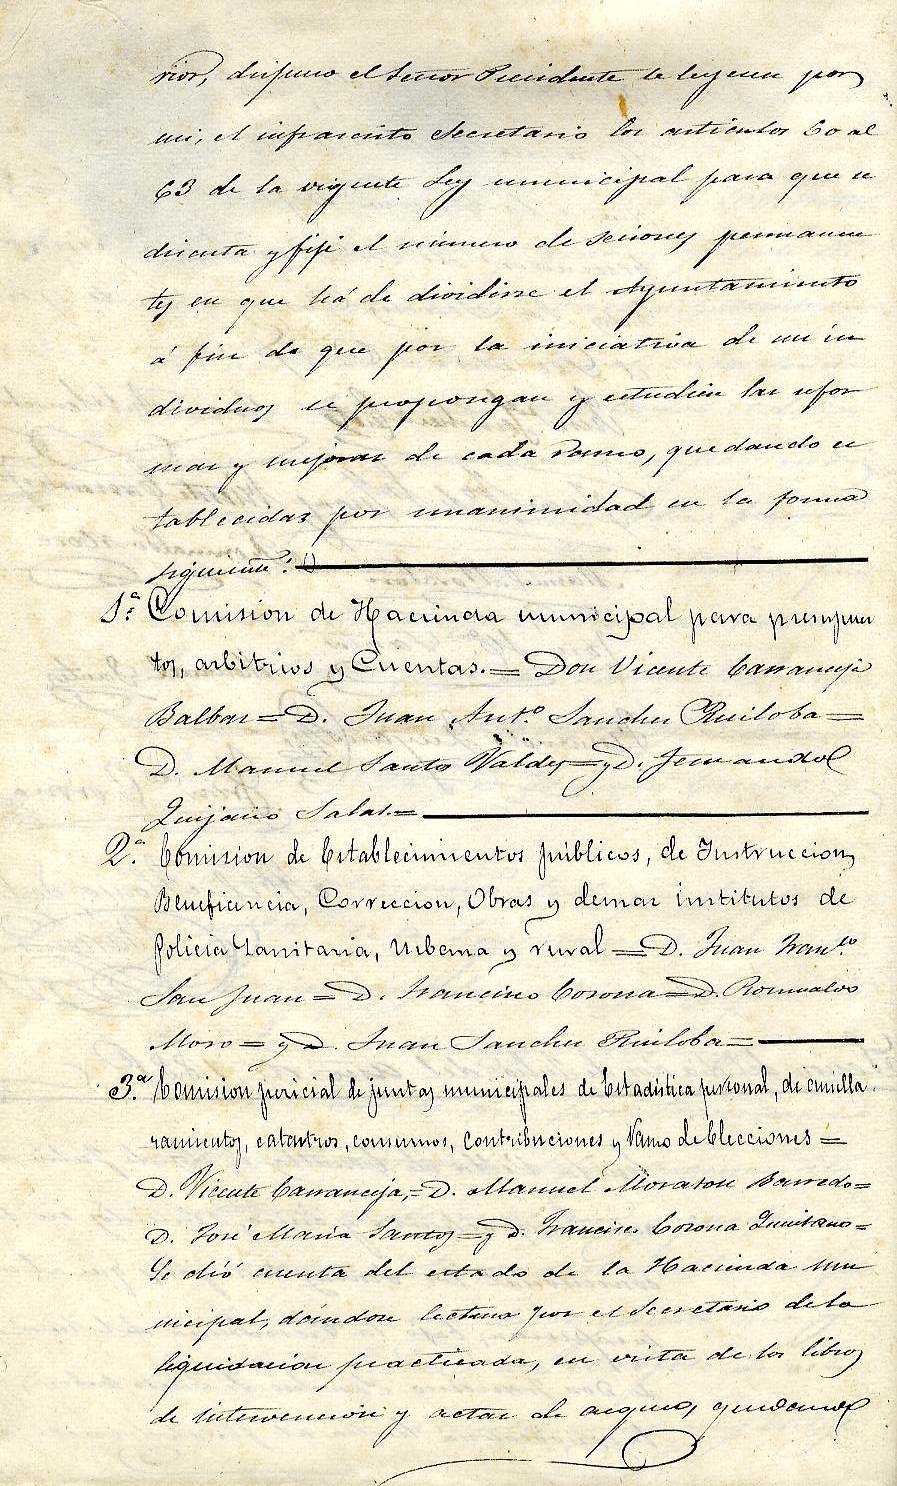 rior, dispuso el Señor Presidente se leyesen por
mi, el infrascrito Secretario los articulos 60 al
63 de la vigente Ley municipal para que se
discuta y fije el número de seciones permanen
tes en que há de dividirse el Ayuntamiento
á fin de que por la iniciativa de sus in
dividuos se propongan y estudien las refor
mas y mejoras de cada Ramo, quedando es
tablecidas por unanimidad en la forma
siguiente:
1ª. Comision de Hacienda municipal para presupues
tos, arbitrios y Cuentas.= Don Vicente Carranceja
Balbas= D. Juan Ant.º Sanchez Ruiloba=
D. Manuel Santos Valdes=y D. Fernando
Quijano Salas.=
2ª. Comision de Establecimientos públicos, de Instruccion,
Beneficencia, Correccion, Obras y demas institutos de
Policia Sanitaria, urbana y rural = D. Juan Fran.co
San Juan= D. Francisco Corona= D. Romualdo
Moro= y D. Juan Sanchez Ruiloba=
3ª. Comision pericial de juntas municipales de Estadistica personal, de amilla
ramientos, catastros, consumos, contribuciones y Ramo de Elecciones =
D. Vicente Carranceja,= D. Manuel Moraton Barreda=
D. José Maria Santos= y D. Francisco Corona Quintano=
Se dió cuenta del estado de la Hacienda mu
nicipal, dándose lectura por el Secretario de la
liquidacion practicada, en vista de los libros
de intervencion y actas de arqueo, quedando